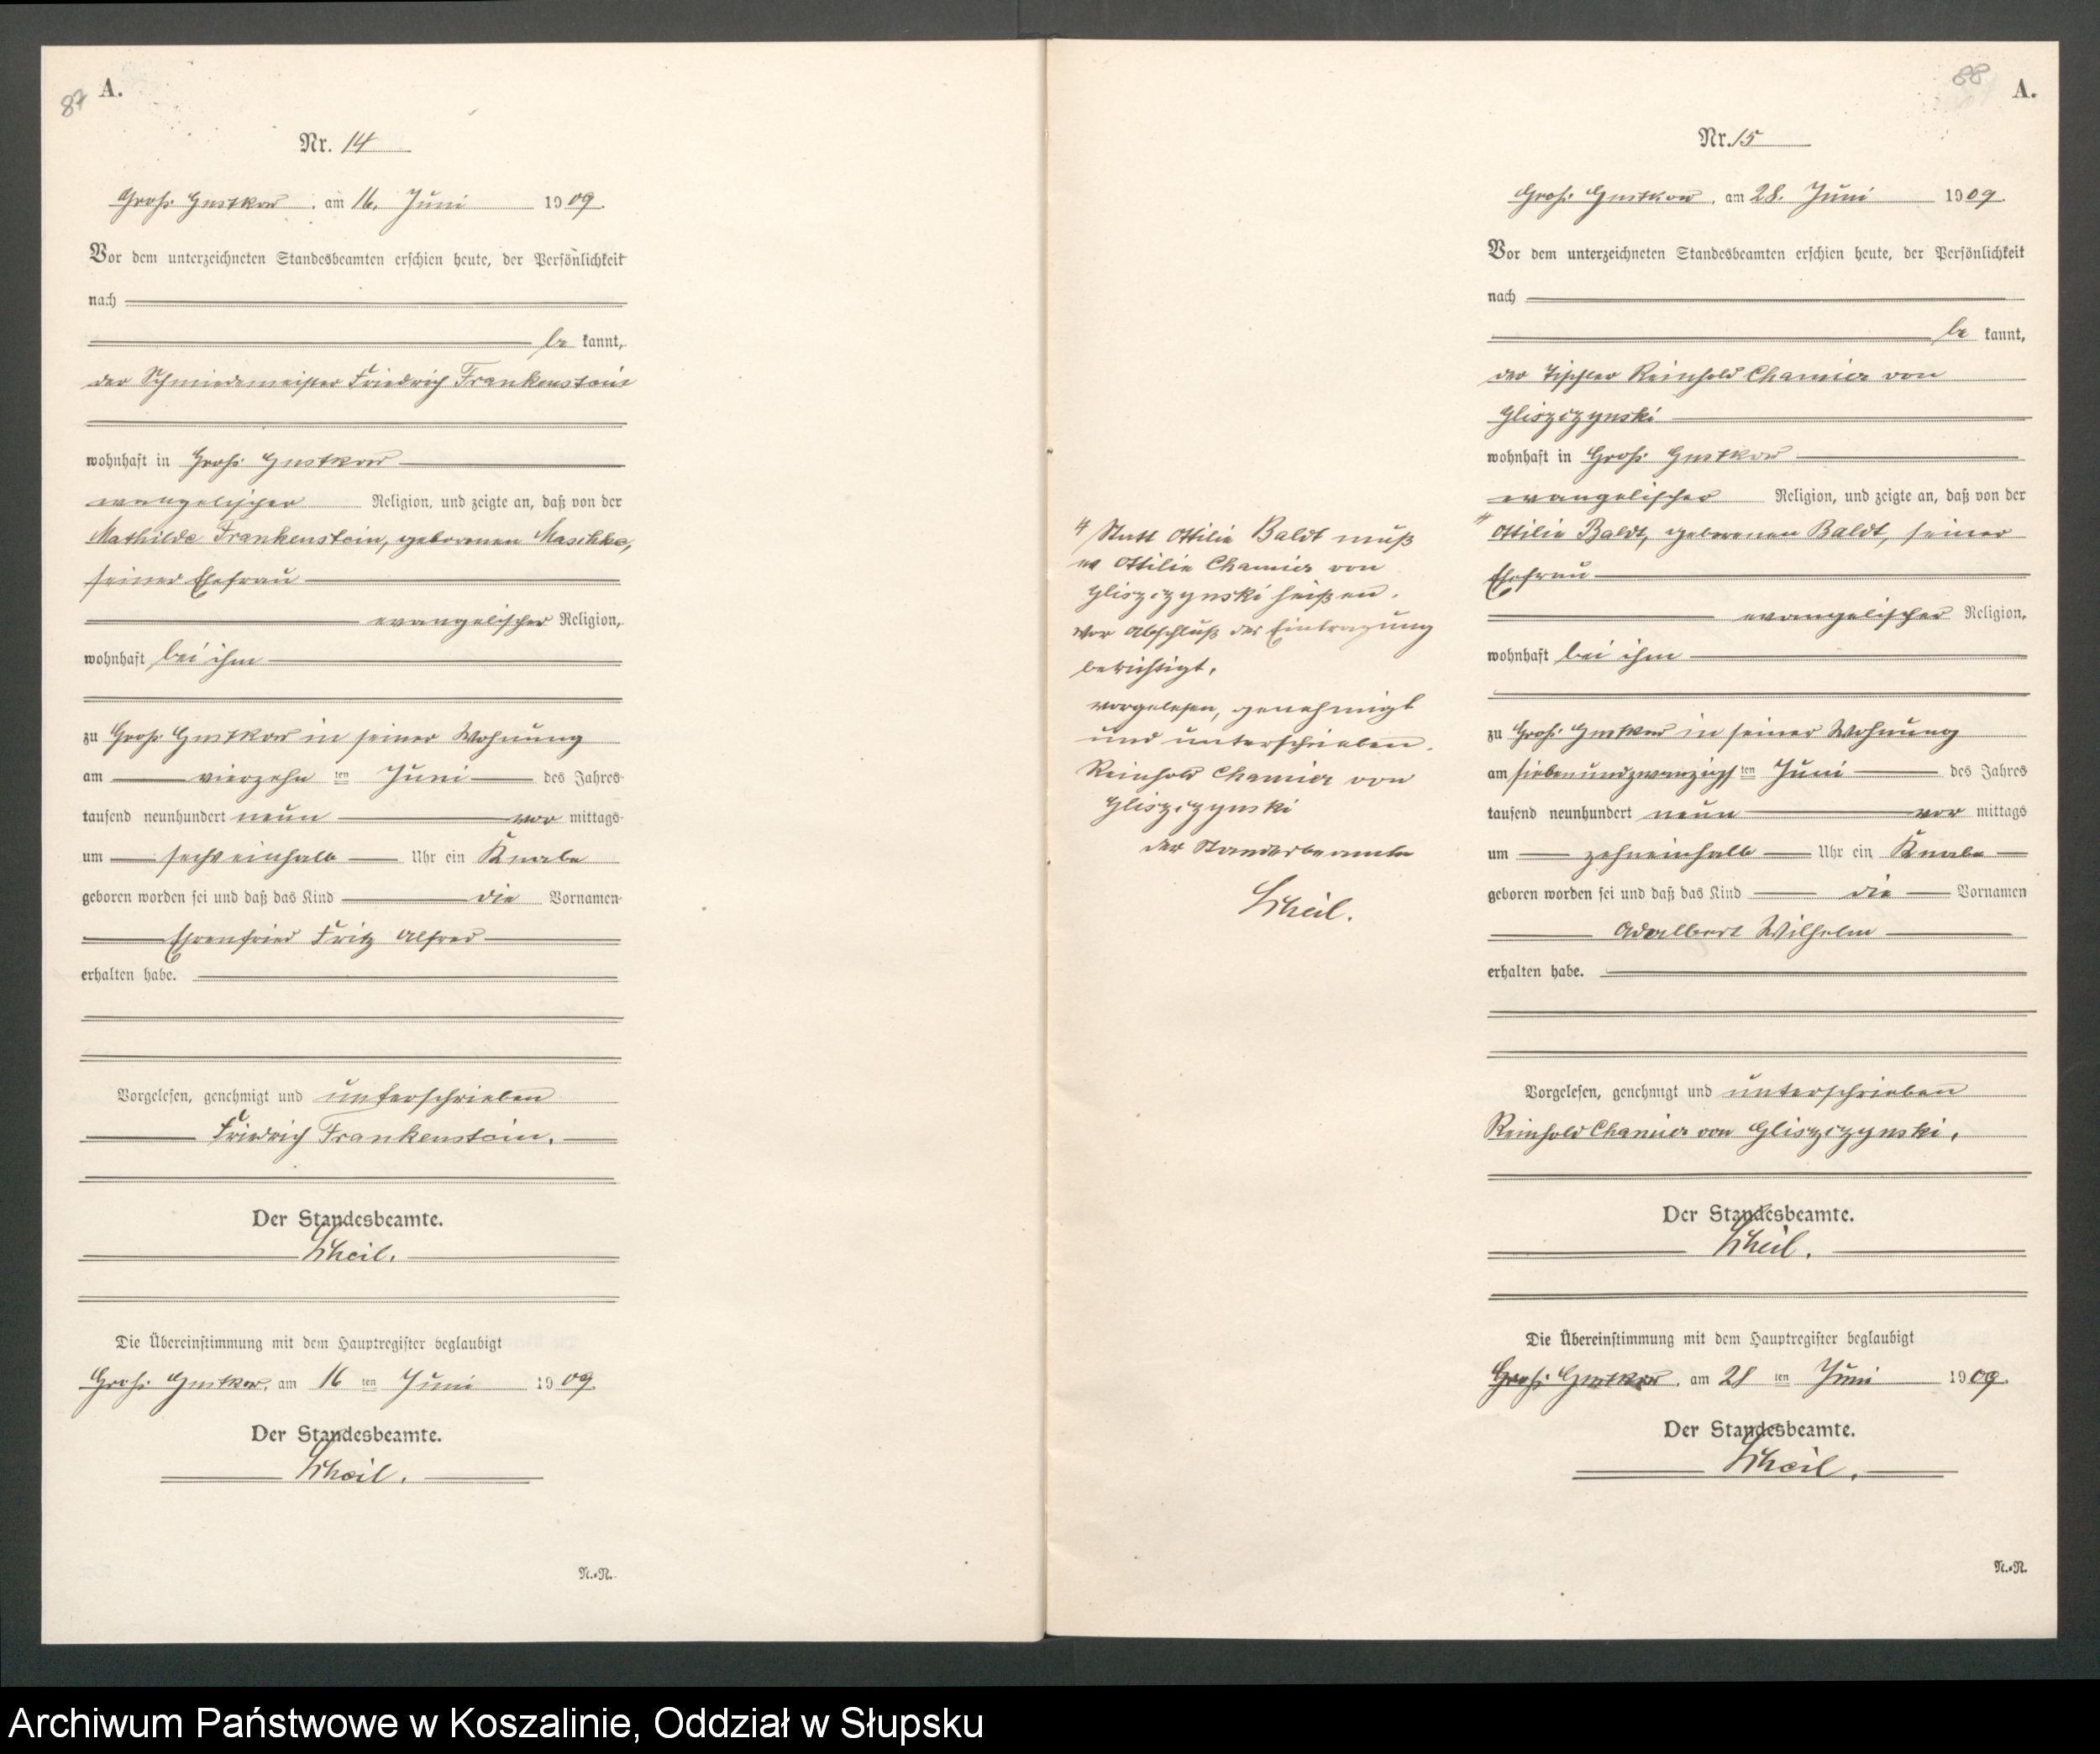 87 A.
Nr. 14
Groß Gustkow, am 16. Juni 1909.
Vor dem unterzeichneten Standesbeamten erschien heute, der Persönlichkeit
nach
be kannt,
der Schmiedemeister Friedrich Frankenstein
wohnhaft in Groß Gustkow
evangelischer Religion, und zeigte an, daß von der
Mathilde Frankenstein, geborenen Maschke,
seiner Ehefrau
evangelischer Religion,
wohnhaft bei ihm
zu Groß Gustkow in seiner Wohnung
am vierzehn ten Juni des Jahres
tausend neunhundert neun vor mittags
um sechseinhalb Uhr ein Knabe
geboren worden sei und daß das Kind die Vornamen
Ehrenfried Fritz Alfred
erhalten habe.
Vorgelesen, genehmigt und unterschrieben
Friedrich Frankenstein.
Der Standesbeamte.
Scheil.
Die Übereinstimmung mit dem Hauptregister beglaubigt
Groß Gustkow, am 16 ten Juni 1909.
Der Standesbeamte.
Scheil.
N.=N.
88 A.
Nr. 15
Groß Gustkow, am 28. Juni 1909.
Vor dem unterzeichneten Standesbeamten erschien heute, der Persönlichkeit
nach
be kannt,
der Tischler Reinhold Chamier von
Gliszczynski
wohnhaft in Groß Gustkow
evangelischer Religion, und zeigte an, daß von der
Ottilie Baldt, geborenen Baldt, seiner
Ehefrau
evangelischer Religion,
wohnhaft bei ihm
zu Groß Gustkow in seiner Wohnung
am siebenundzwanzigs ten Juni des Jahres
tausend neunhundert neun vor mittags
um zehneinhalb Uhr ein Knabe
geboren worden sei und daß das Kind die Vornamen
Adalbert Wilhelm
erhalten habe.
Vorgelesen, genehmigt und unterschrieben
Reinhold Chamier von Gliszczynski.
Der Standesbeamte.
Scheil.
Die Übereinstimmung mit dem Hauptregister beglaubigt
Groß Gustkow, am 28 ten Juni 1909.
Der Standesbeamte.
Scheil.
N.=N.
Statt Ottilie Baldt muß
es Ottilie Chamier von
Gliszczynski heißen.
Vor Abschluß der Eintragung
berichtigt.
Vorgelesen, genehmigt
und unterschrieben.
Reinhold Chamier von
Gliszczynski
Der Standesbeamte
Scheil.
Archiwum Państwowe w Koszalinie, Oddział w Słupsku